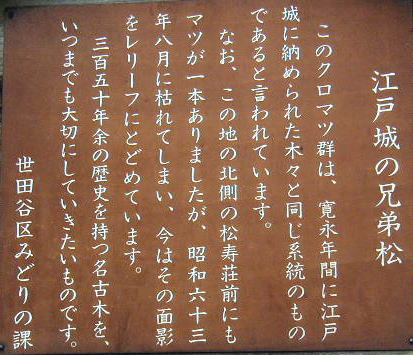 江戸城の兄弟松
このクロマツ群は、寛永年間に江戸
城に納められた木々と同じ系統のもの
であると言われています。
なお、この地の北側の松寿荘前にも
マツが一本ありましたが、昭和六十三
年八月に枯れてしまい、今はその面影
をレリーフにとどめています。
三百五十年余の歴史を持つ名古木を、
いつまでも大切にしていきたいものです。
世田谷区みどりの課